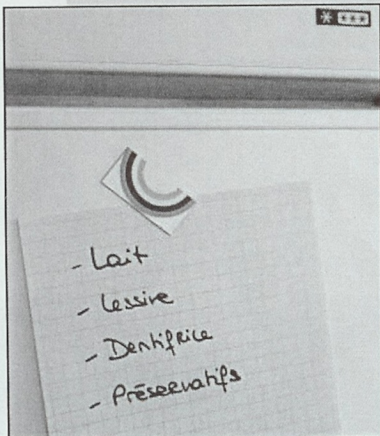 - Lait
- Lessive
- Dentifrice
- Préservatifs